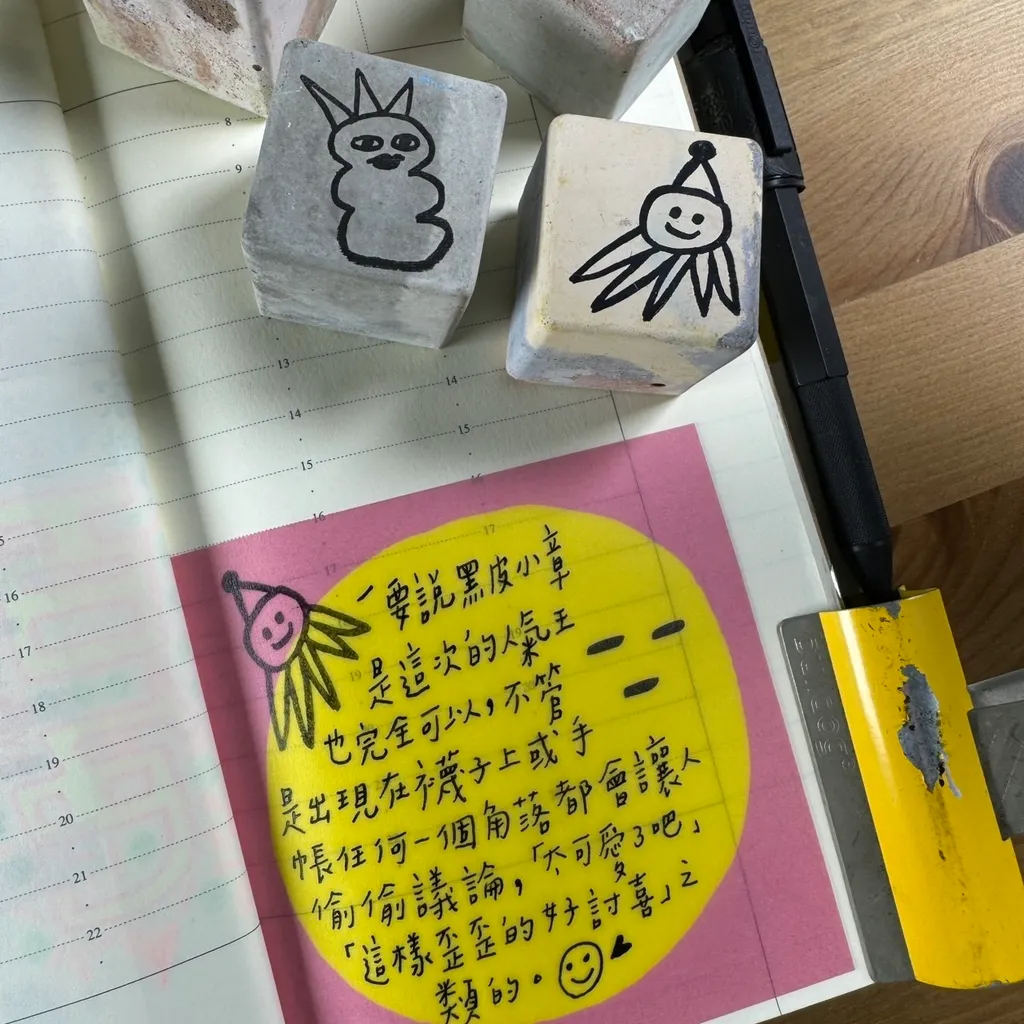 8
9
13
14
15
16
17
14
15
16
17
19
16
17
18
19
20
21
22
一要說黑皮小章
是這次的人氣王
也完全可以，不管
是出現在襪子上或手
帳任何一個角落都會讓人
偷偷議論，「太可愛了吧」
「這樣歪歪的好討喜」之
類的。